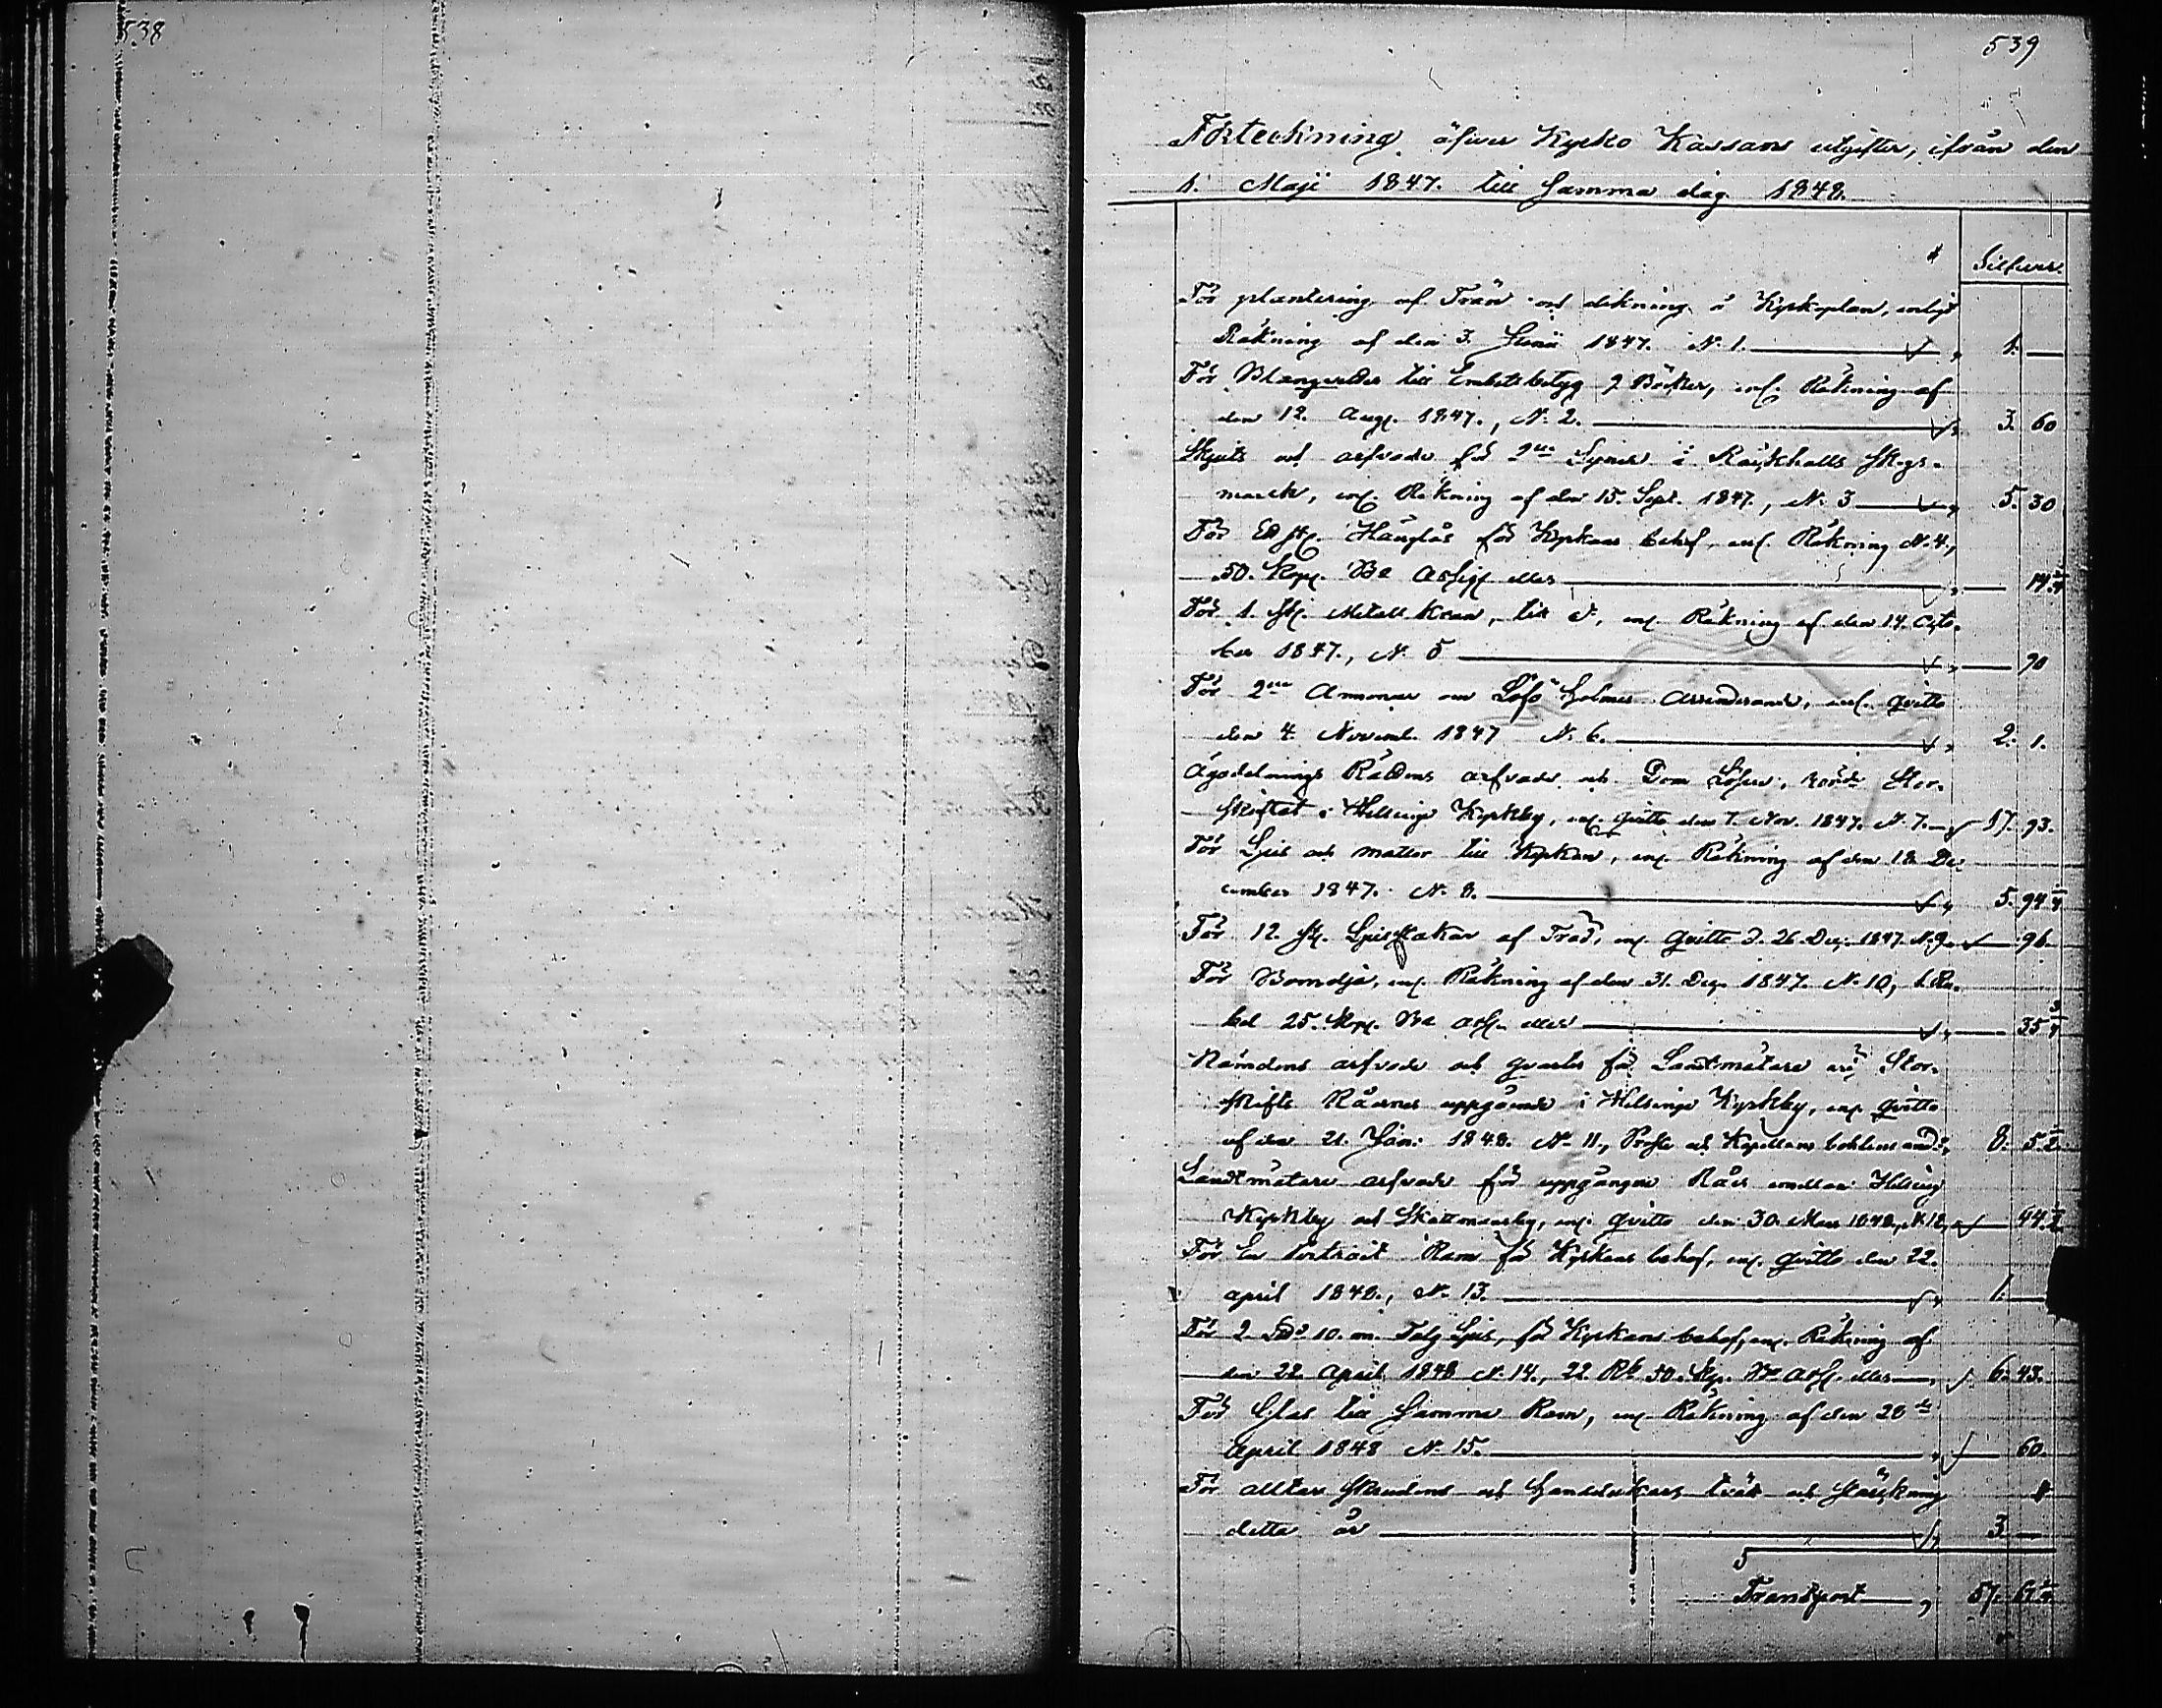 538
539
Förteckning öfwer Kyrko Kassans utgifter, ifrån den
1. Maji 1847. till samma dag 1848.
Silfwer.
För plantering af Trän och dikning å Kyrkoplan, enligt
Räkning af den 3. Junii 1847. N. 1. 1. —
För till Embetsbetyg 2 Böcker, enl. Räkning af
den 12. Aug. 1847., N. 2. 3. 60
Skjuts och arfvode för 2ne Syner i Skogs-
mark, enl. Räkning af den 15. Sept. 1847., N. 3 5. 30
För Ett st. Hänglås för Kyrkans behof, enl. Räkning N. 4.,
50. Kop. B:o Assig. eller 14.
För 1. st. Metall Kran, till d:o, enl. Räkning af den 14. Octo-
ber 1847., N. 5 90
För 2ne Annoncer om Löfö Holmes Arrenderande, enl. qvitto
den 4. Novemb. 1847 N. 6. 2. 1.
Ägodelnings Rättens arfvode och Dom Lösen, rörde Stor-
skiftet i Helsinge Kyrkby, enl. qvitto den 7. Nov. 1847. N. 7. 17. 93.
För Ljus och mattor till Kyrkan, enl. Räkning af den 18. De-
cember 1847. N. 8. 5. 94 1/4
För 12. st. Ljusstakar af Träd, enl. Qvitto d. 26. Dec. 1847. N. 9. 96.
För Bomolja, enl. Räkning af den 31. Dec. 1847. N. 10, 1. Ru-
bel 25. Kop. B:o Ass. eller 35 3/4
Nämdens arfvode och qvarter för Landtmätare vid Stor-
skifts Råernes uppgående i Helsinge Kyrkby, enl. Qvitto
af den 21. Jan. 1848. N. 11., Prosts och Kapellans bohlens and. 8. 5 1/2
Landtmätare arfvode för uppgången Råer emellan Helsing
Kyrkby och Skattmansby, enl. Qvitto den 30. Mars 1848., N. 12, 44.
För En Portrait Ram för Kyrkans behof, enl. Qvitto den 22.
april 1848., N. 13. 1. —
För 2 10. m. Talg Ljus, för Kyrkans behof, enl. Räkning af
den 22. April 1848 N. 14., 22. Rb. 50. Kop. B:o Ass. eller 6. 43.
För Glas till Samma Ram, enl. Räkning af den 28de
April 1848 N. 15. 60.
För alltar skrudens och Handdukars tvätt och stärkning
detta år 3. —
Transport 57.